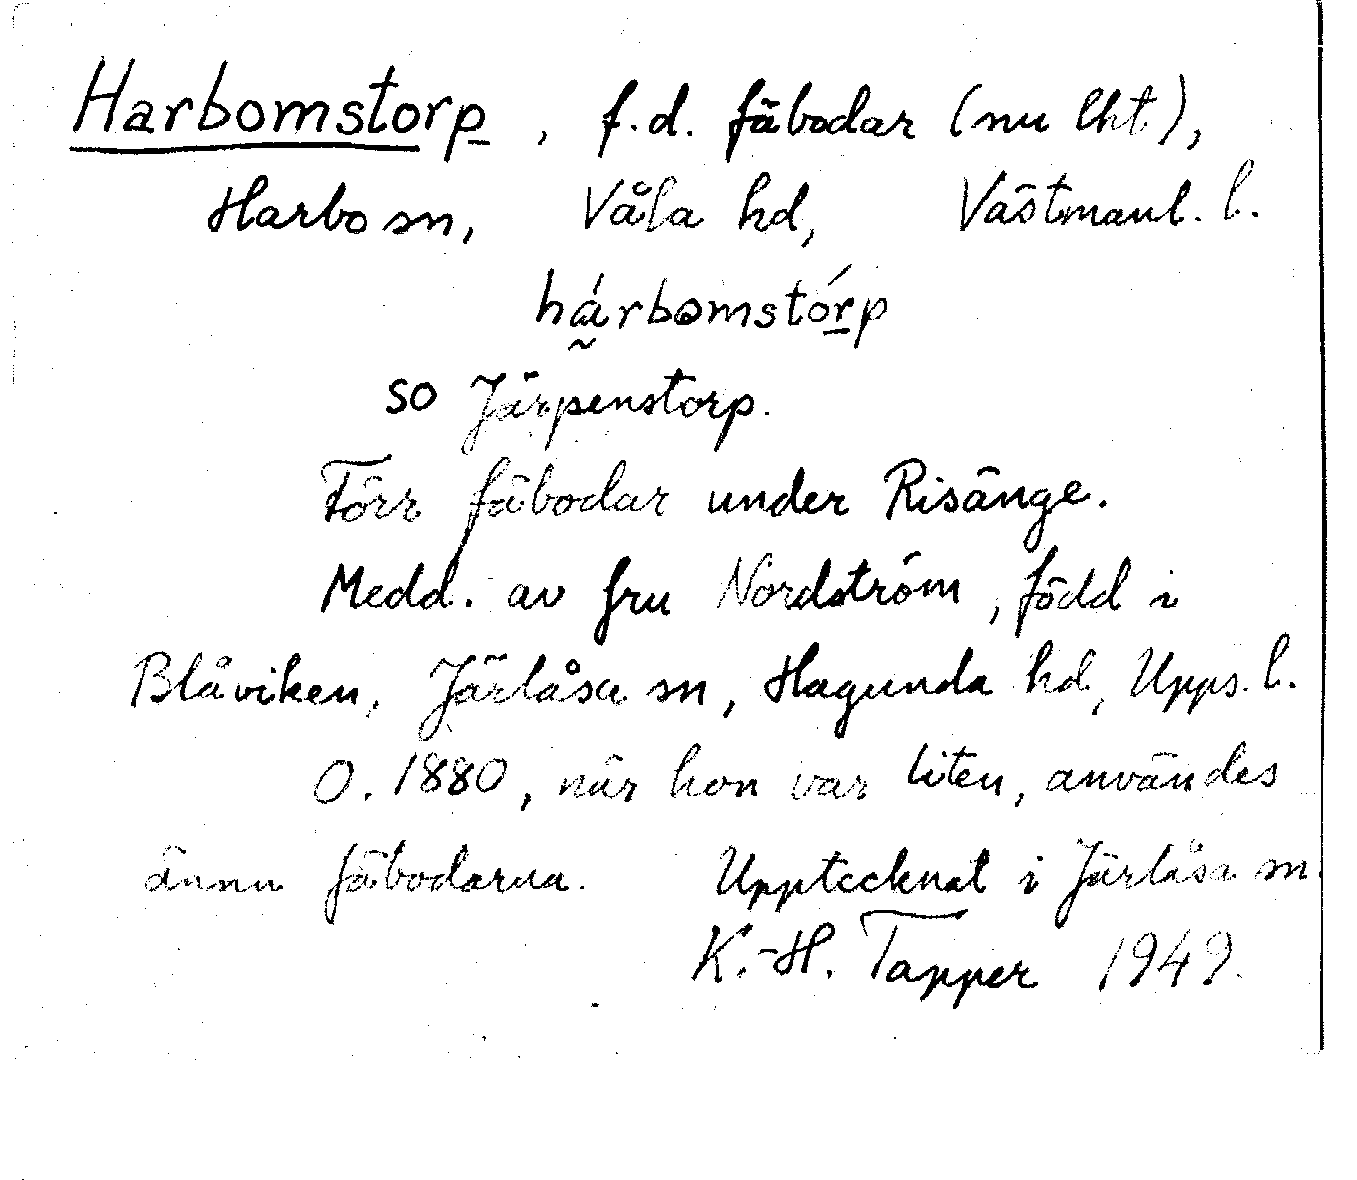 Harbomstorp, f.d. fäbodar (nu lht),
Harbo sn, Våla hd, Västmanl. l.
hárbomstórp
so Järpenstorp.
Förr fäbodar under Risänge.
Medd. av fru Nordström, född i
Blåviken, Järlåsa sn, Hagunda hd, Upps. l.
O. 1880, när hon var liten, användes
ännu fäbodarna. Upptecknat i Järlåsa sn.
K.-H. Tapper 1949.